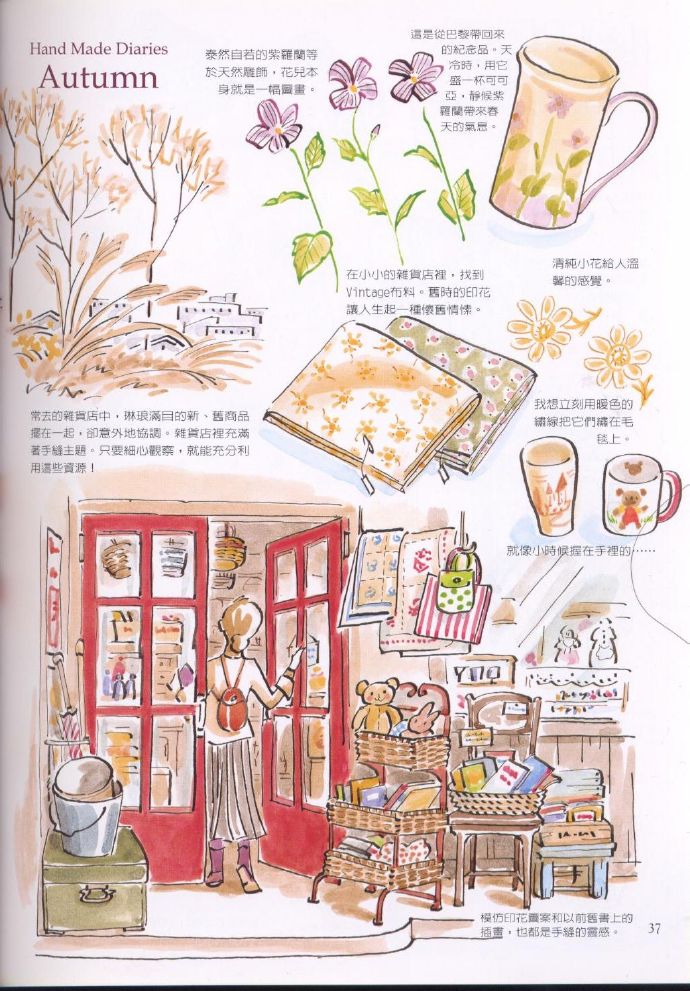 Hand Made Diaries
Autumn
泰然自若的紫羅蘭等
於天然雕飾，花兒本
身就是一幅圖畫。
這是從巴黎帶回來
的紀念品。天
冷時，用它
盛一杯可可
亞，靜候紫
羅蘭帶來春
天的氣息。
在小小的雜貨店裡，找到
Vintage布料。舊時的印花
讓人生起一種懷舊情愫。
清純小花給人溫
馨的感覺。
我想立刻用暖色的
繡線把它們繡在毛
毯上。
常去的雜貨店中，琳琅滿目的新、舊商品
擺在一起，卻意外地協調。雜貨店裡充滿
著手縫主題。只要細心觀察，就能充分利
用這些資源！
就像小時候握在手裡的……
模仿印花圖案和以前舊書上的
插畫，也都是手縫的靈感。
37